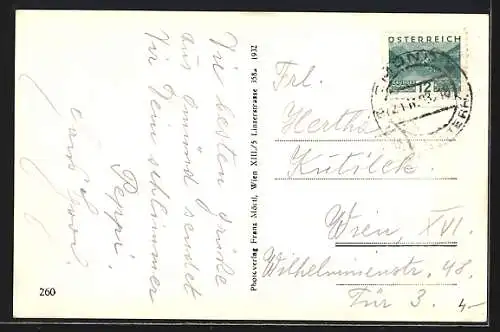 Die besten Grüße
aus Gmünd sendet
Dir Dein schlimmer
Peppi.
260
Photoverlag Franz Mörtl, Wien XIII/5 Linzerstrasse 358a 1932
ÖSTERREICH
12
Frl.
Hertha
Kutilek
Wien, XVI.
Wilhelminenstr. 48.
Tür 3.
4-